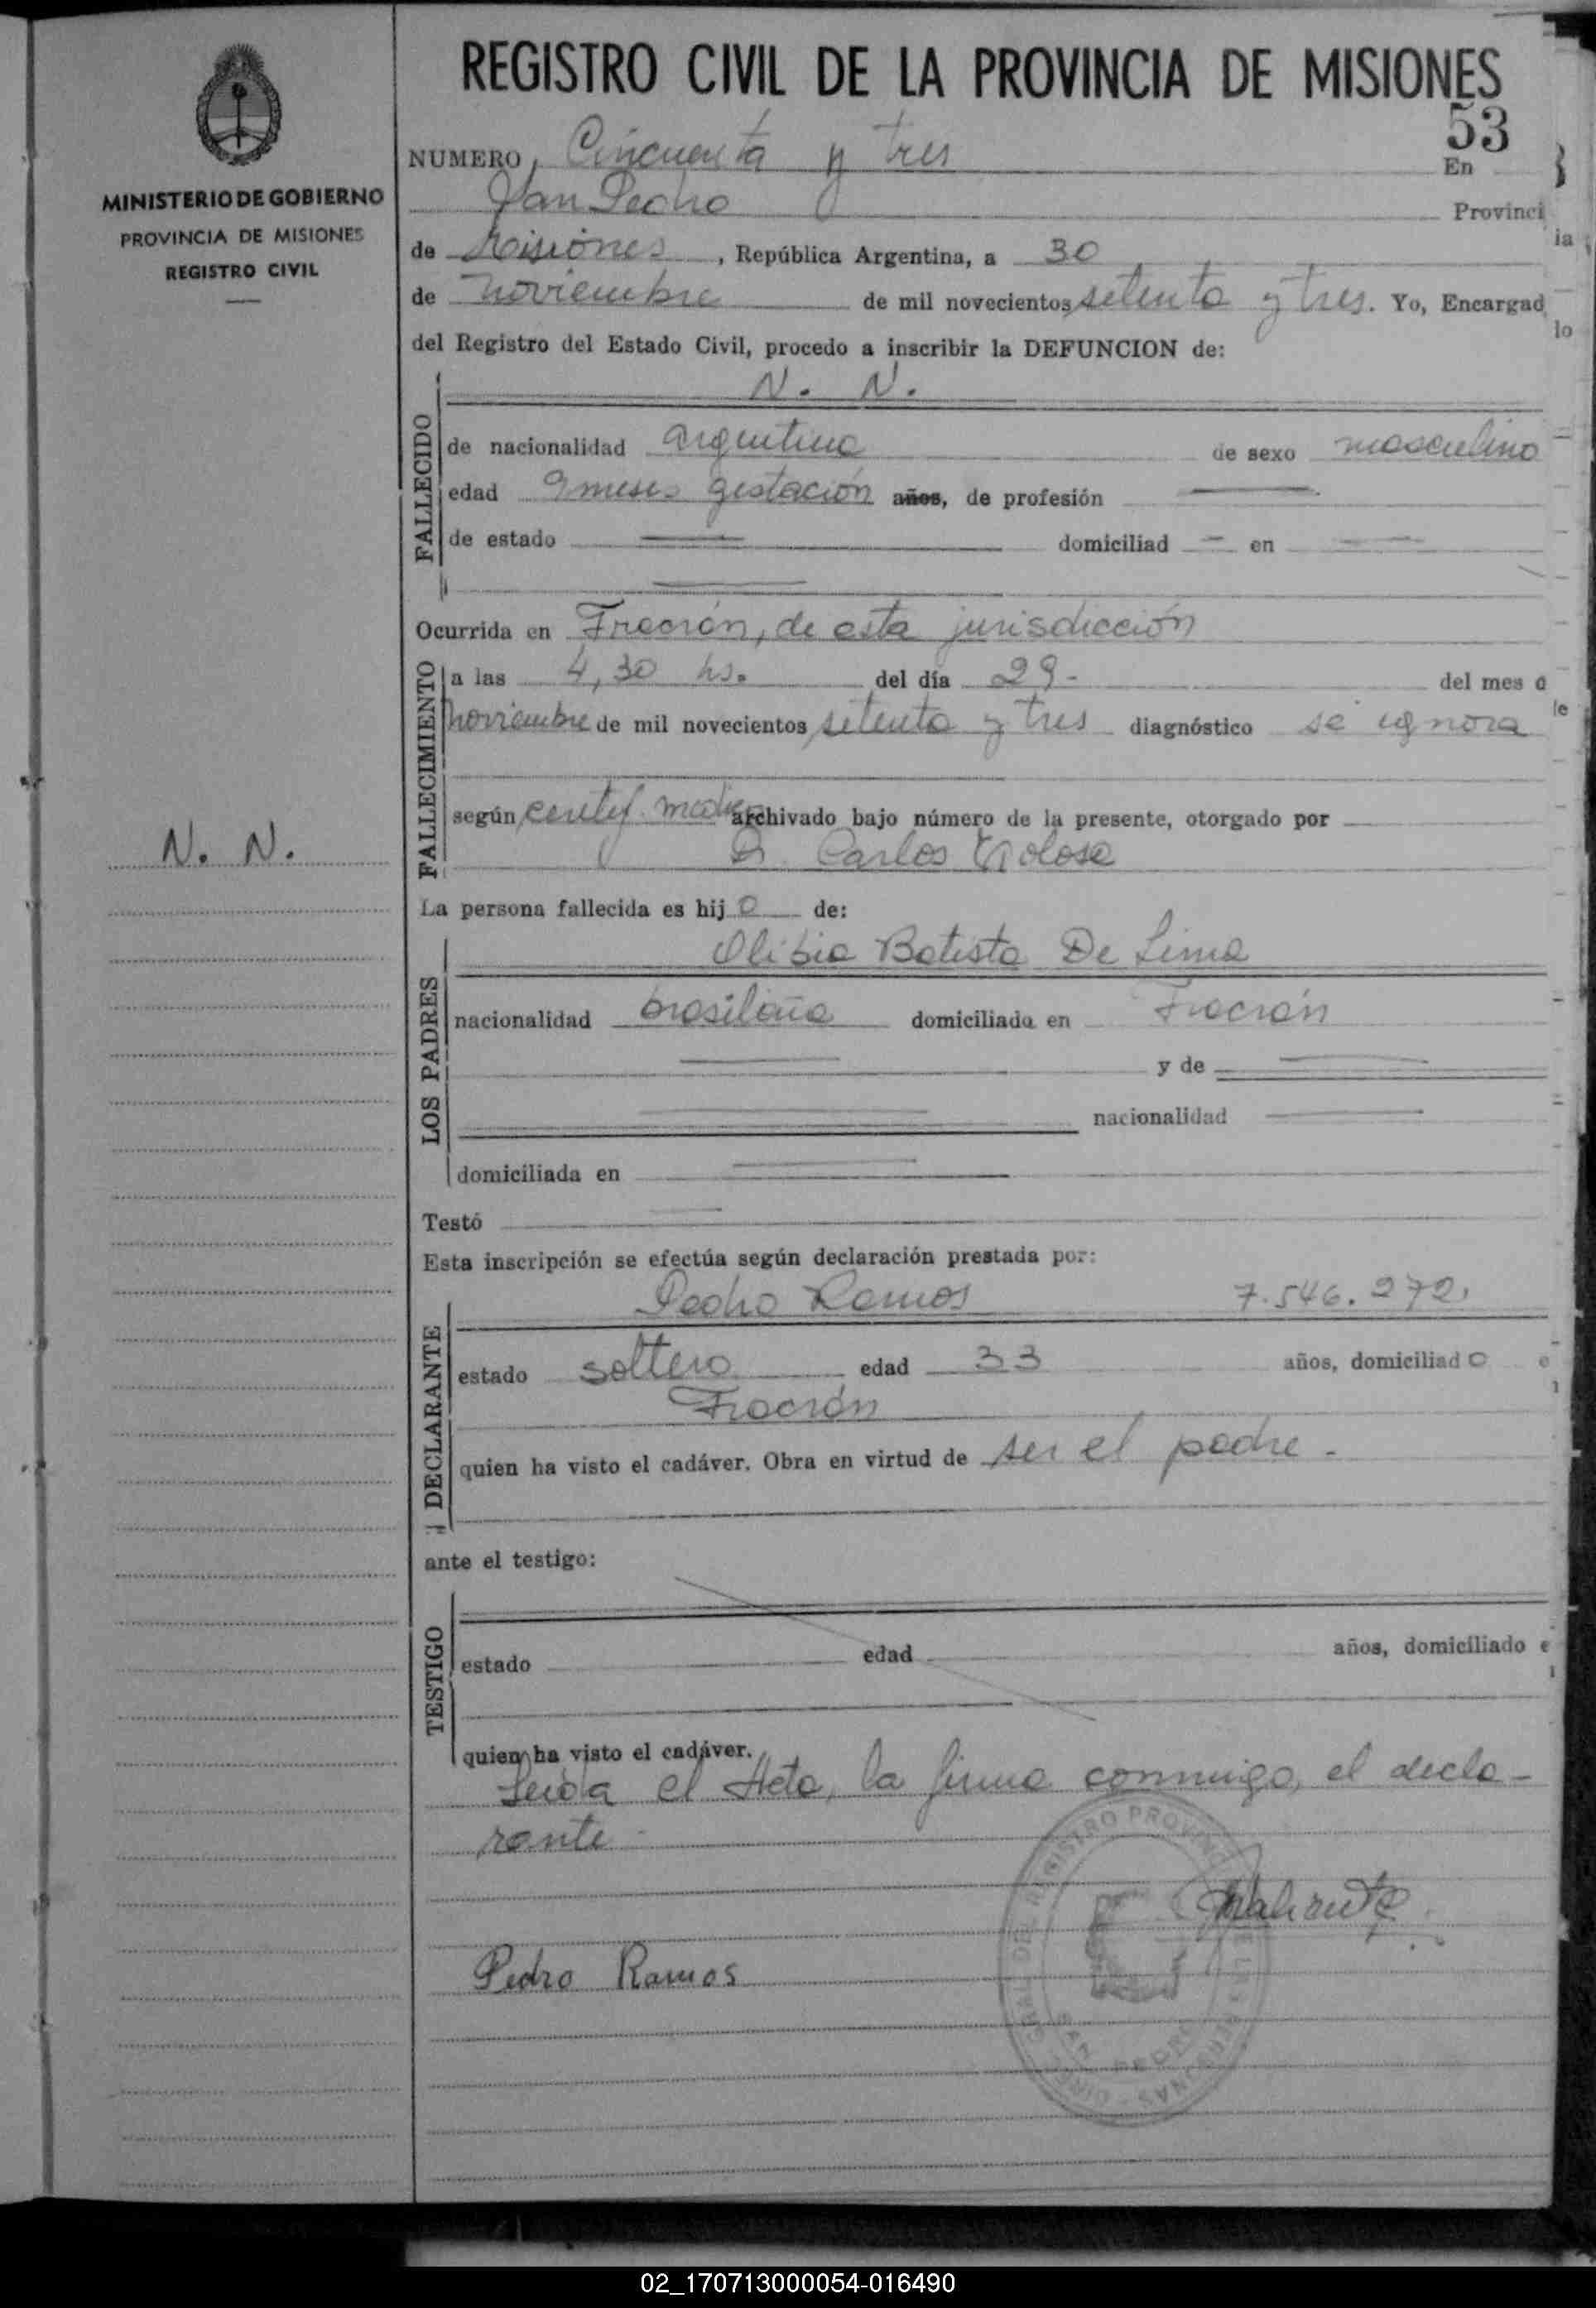 REGISTRO CIVIL DE LA PROVINCIA DE MISIONES
MINISTERIO DE GOBIERNO
PROVINCIA DE MISIONES
REGISTRO CIVIL
N. N.
53
NUMERO, Cincuenta y tres En
San Pedro Provinci
ia
de Misiones, República Argentina, a 30
de noviembre de mil novecientos setenta y tres. Yo, Encargad
lo
del Registro del Estado Civil, procedo a inscribir la DEFUNCION de:
N. N.
FALLECIDO
de nacionalidad argentina de sexo masculino
edad 9 meses gestación años, de profesión —
de estado — domiciliad — en —
Ocurrida en Fracrán, de esta jurisdicción
FALLECIMIENTO
a las 4,30 hs. del día 29- del mes d
le
noviembre de mil novecientos setenta y tres diagnóstico se ignora
según certif. medico archivado bajo número de la presente, otorgado por
Dr. Carlos
La persona fallecida es hijo de:
LOS PADRES
Olibia Batista De Lima
nacionalidad brasileña domiciliada en Fracrán
— y de —
— nacionalidad —
domiciliada en —
Testó —
Esta inscripción se efectúa según declaración prestada por:
DECLARANTE
Pedro Ramos 7.546.272.
estado soltero edad 33 años, domiciliado e
Fracrán
quien ha visto el cadáver. Obra en virtud de ser el padre.
ante el testigo:
TESTIGO
estado edad años, domiciliado e
quien ha visto el cadáver.
Leida el Acta, la firma conmigo, el decla-
rante.
Pedro Ramos
SAN PEDRO
02_170713000054-016490